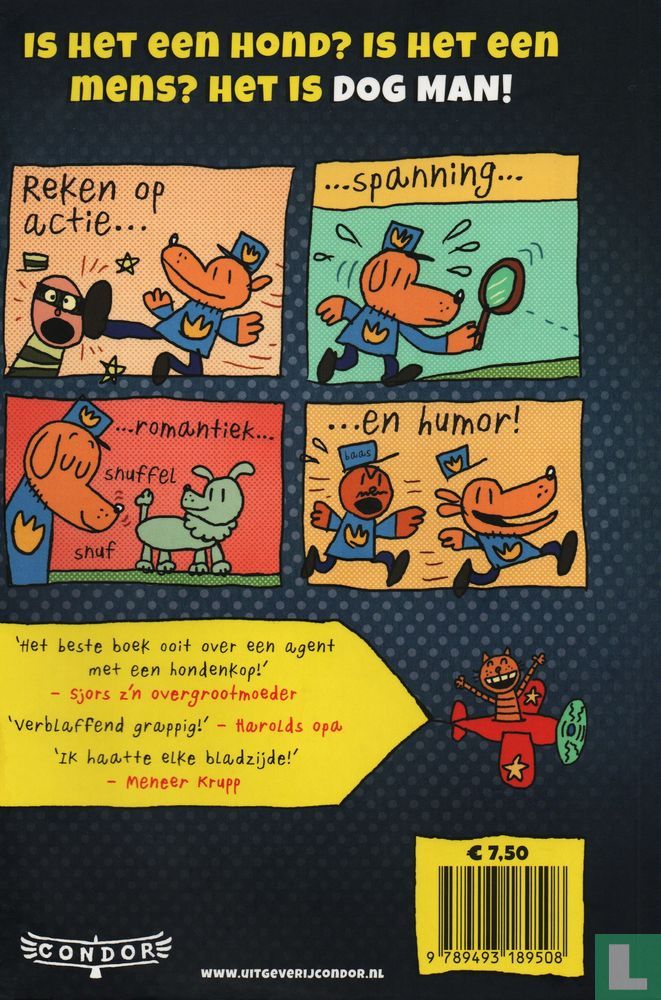 Is het een hond? Is het een
mens? Het is DOG MAN!
Reken op
actie...
...spanning...
...romantiek...
snuffel
snuf
...en humor!
baas
'Het beste boek ooit over een agent
met een hondenkop!'
– Sjors z'n overgrootmoeder
'Verblaffend grappig!' – Harolds opa
'Ik haatte elke bladzijde!'
– Meneer Krupp
€ 7,50
9 789493 189508
CONDOR
WWW.UITGEVERIJCONDOR.NL
L